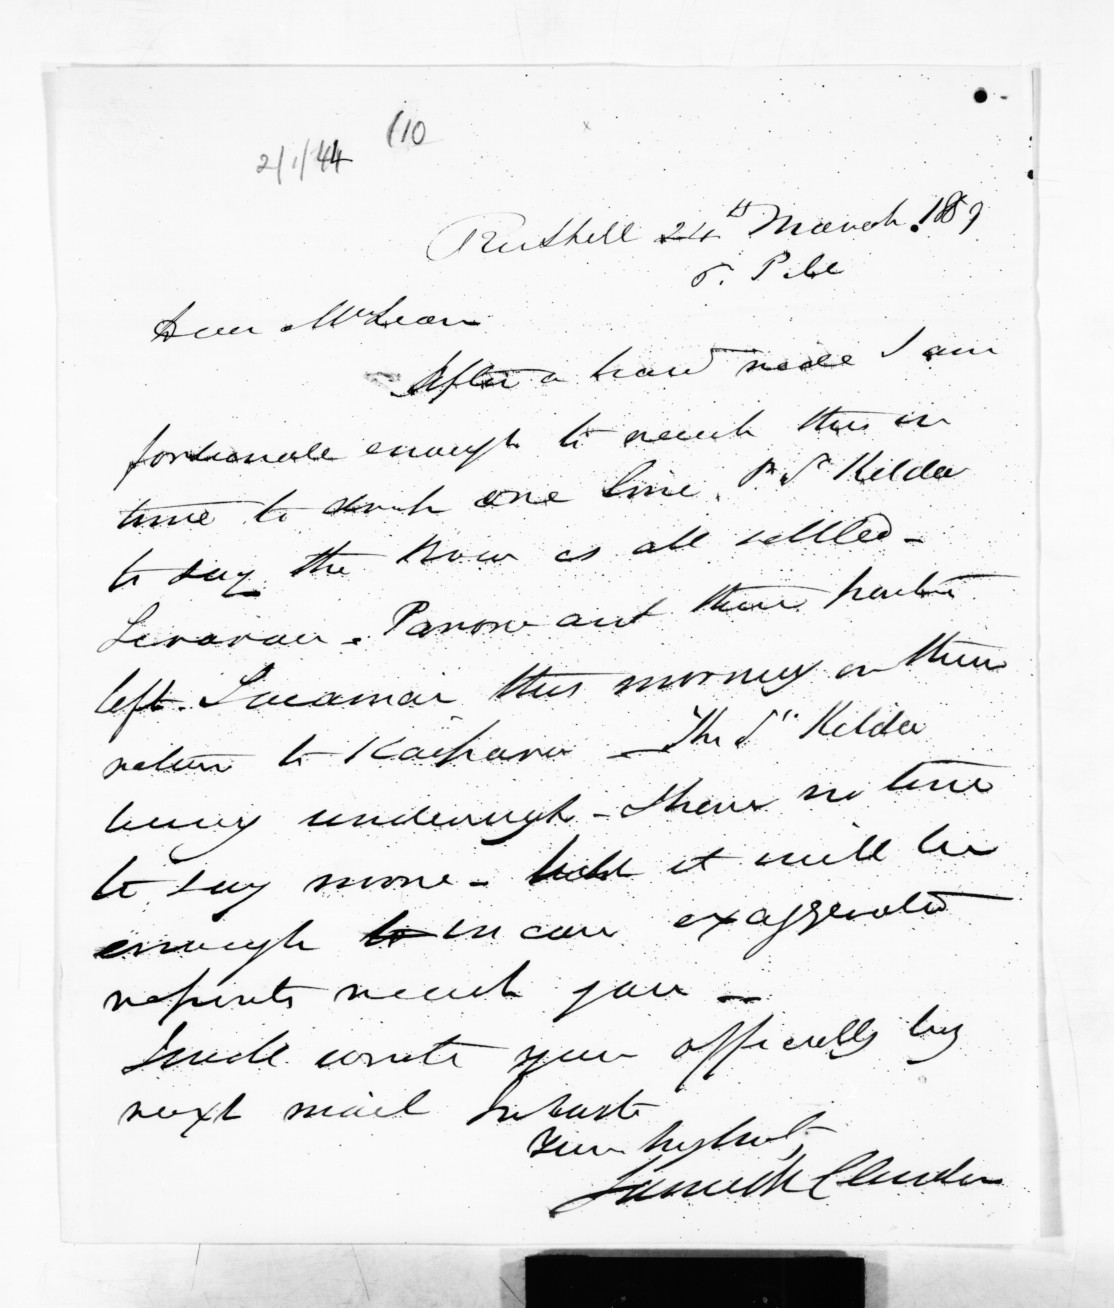 2/1/44 (10
Russell 24th March. 1869
6. P.M.
Dear McLean
After a hard ride I am
fortunate enough to reach this in
time to drop one line. Pr St Kilda
to say the Row is all settled -
Parore and their parties
left this morning on their
return to Kaipara - The St Kilda
being underweigh - I have no time
to say more - but it will be
enough in case exaggerated
reports reach you -
I will write you officially by
next mail In haste
Yours
Clendon